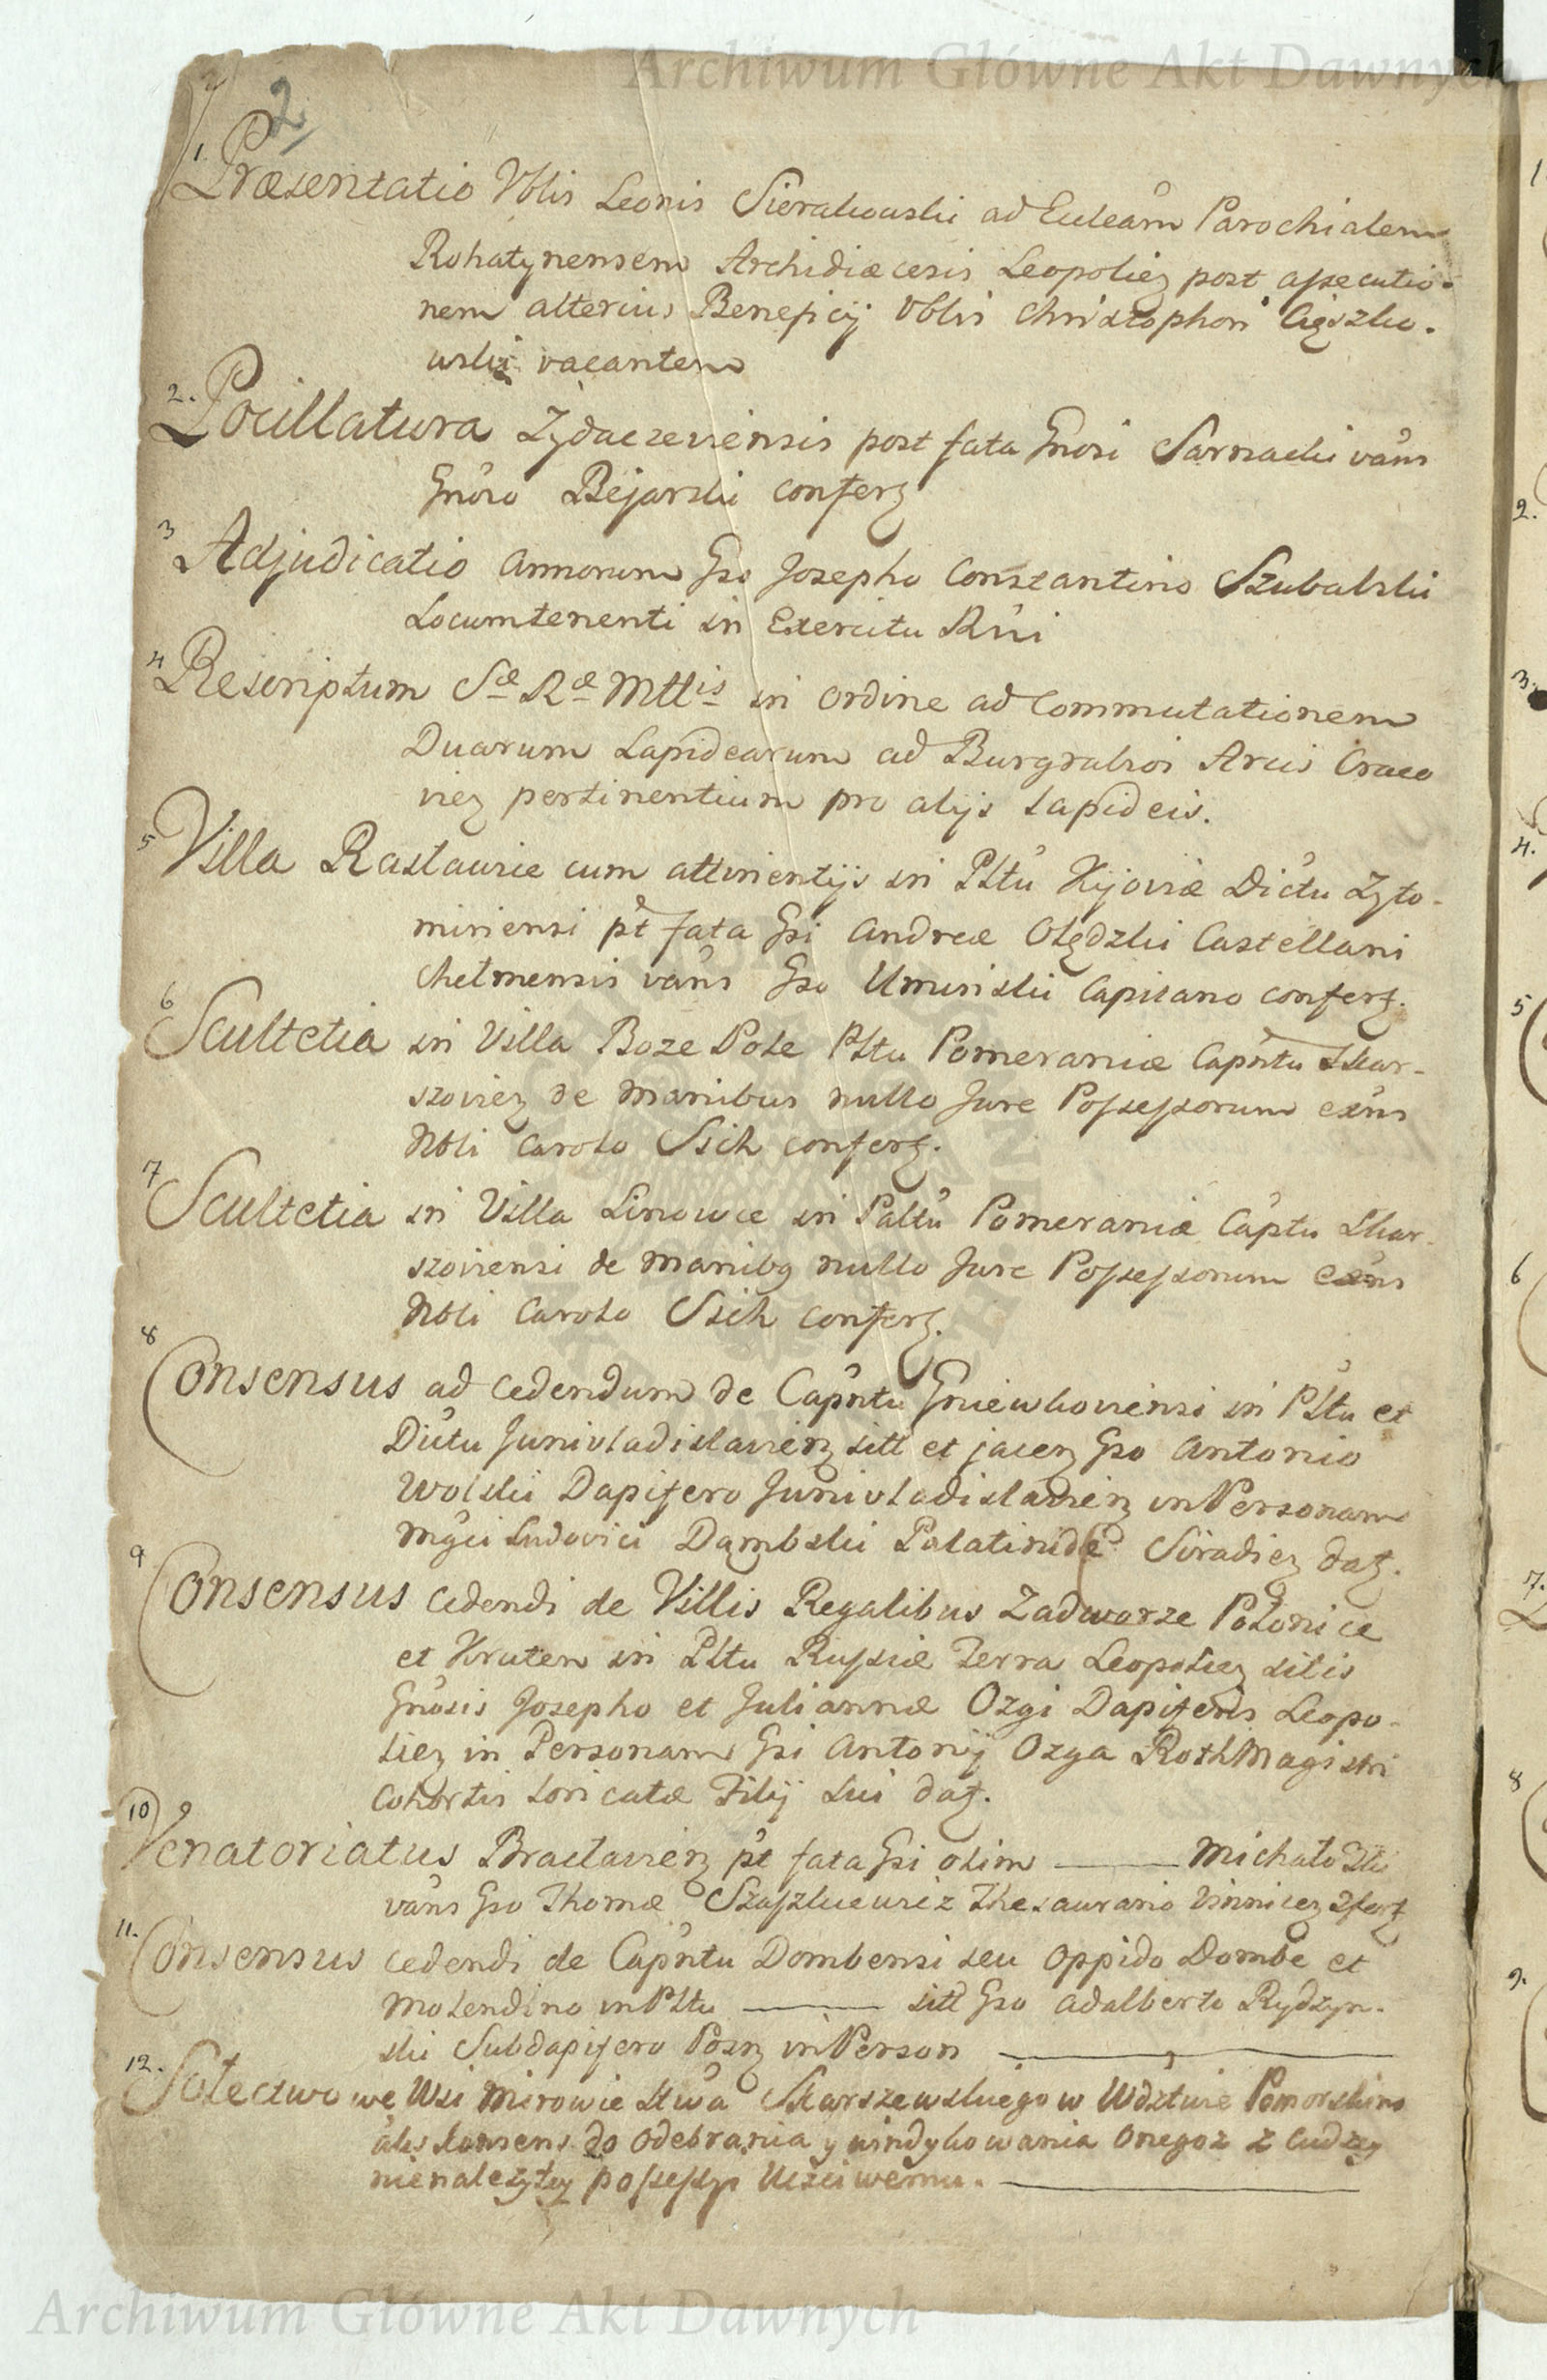 Archiwum Główne Akt Dawnych
2
1. Præsentatio Vblis Leonis Sierakowski ad Eccleam Parochialem
Rohatynensem Archidiæcesis Leopoliez post assecutio-
nem alterius Beneficij Vblis Christophori Cięszko-
wski vacantem
2. Pocillatura Zydaczeviensis post fata Gnosi Sarnacki vans
Gnoso Bejarski conferz
3 Adjudicatio Annorum Gso Josepho Constantino Szubalski
Locumtenenti in Exercitu Rni
4 Rescriptum Sæ Ræ Mttis in ordine ad Commutationem
Duarum Lapidearum ad Burgrabios Arcis Craco
viez pertinentium pro alijs Lapideis.
5 Villa Rastawie cum attinentijs in Pltu Kijoviæ Dictu Zyto-
miriensi pt fata Gsi Andreæ Olędzki Castellani
Chelmensis vans Gso Uminski Capitano conferz.
6 Scultetia in Villa Boze Pole Pltu Pomeraniæ Capntu Skar-
szoviez de manibus nullo Jure Possessorum exns
Nbli Carolo Ssik conferz.
7 Scultetia in Villa Linowce in Paltu Pomeraniæ Captu Skar-
szoviensi de manibq nullo Jure Possessorum exns
Nbli Carolo Ssik conferz.
8 Consensus ad cedendum de Capntu Gniewkoviensi in Pltu et
Dictu Junivladislaviez sitt et jacez Gso Antonio
Wolski Dapifero Junivladislaviez in Personam
Mgci Ludovici Dąmbski Palatinidæ Siradiez daz.
9 Consensus cedendi de Villis Regalibus Zadwarze Polonice
et Kruten in Pltu Russiæ Terra Leopoliez sitis
Gnosis Josepho et Juliannæ Ozgi Dapiferis Leopo-
liez in Personam Gsi Antonij Ozga RothMagistri
Cohortis Loricatæ Filij sui daz.
10 Venatoriatus Braclaviez pt fata Gsi olim ——— Michalo ski
vans Gso Thomæ Szaszkiewicz Thesaurario Vinnicez 2ferz
11. Consensus cedendi de Capntu Dombensi seu Oppido Dombe et
Molendino in Pltu ——— sitt Gso Adalberto Rydzyn-
ski Subdapifero Posnz in Person ———
12. Solectwo we Wsi Mirowie Stwa Skarszewskiego w Wdztwie Pomorskim
als konsens do Odebrania y windykowania Onegoz z cudzey
nienalezytey possessyi Uczciwemu. ———
Archiwum Główne Akt Dawnych